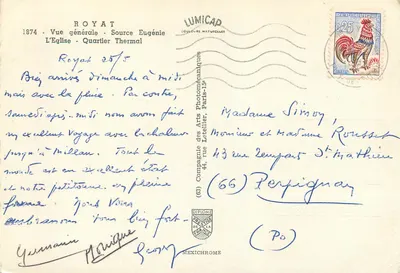 ROYAT
1874 - Vue générale - Source Eugénie
L'Eglise - Quartier Thermal
LUMICAP
Royat 25/5
Bien arrivés dimanche à midi
mais avec la pluie. Par contre,
samedi après-midi nous avons fait
un excellent voyage avec la chaleur
jusqu'à Millau. Tout le
monde est en excellent état
et notre petitoune en pleine
forme. Nous vous
embrassons tous bien fort
Germaine Monique Georges
(63) Compagnie des Arts Photomécaniques
44, rue Letellier, Paris-15e
MEXICHROME
Madame Simon,
Monsieur et Madame Rousset
43 rue Rempart St. Mathieu
(66) Perpignan
(Po)